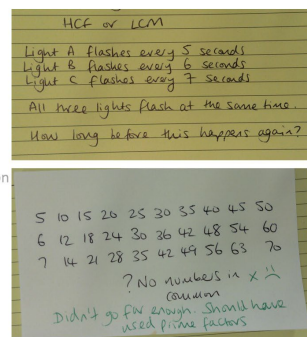 HCF or LCM
Light A flashes every 5 seconds
Light B flashes every 6 seconds
Light C flashes every 7 seconds
All three lights flash at the same time.
How long before this happens again?
on
5 10 15 20 25 30 35 40 45 50
6 12 18 24 30 36 42 48 54 60
7 14 21 28 35 42 49 56 63 70
? No numbers in x
common
Didn't go far enough. Should have
used prime factors